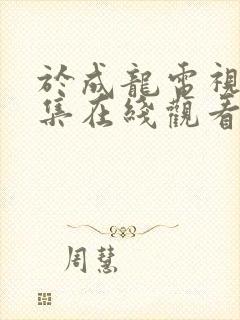 於成龍電視
集在綫觀看
周慧